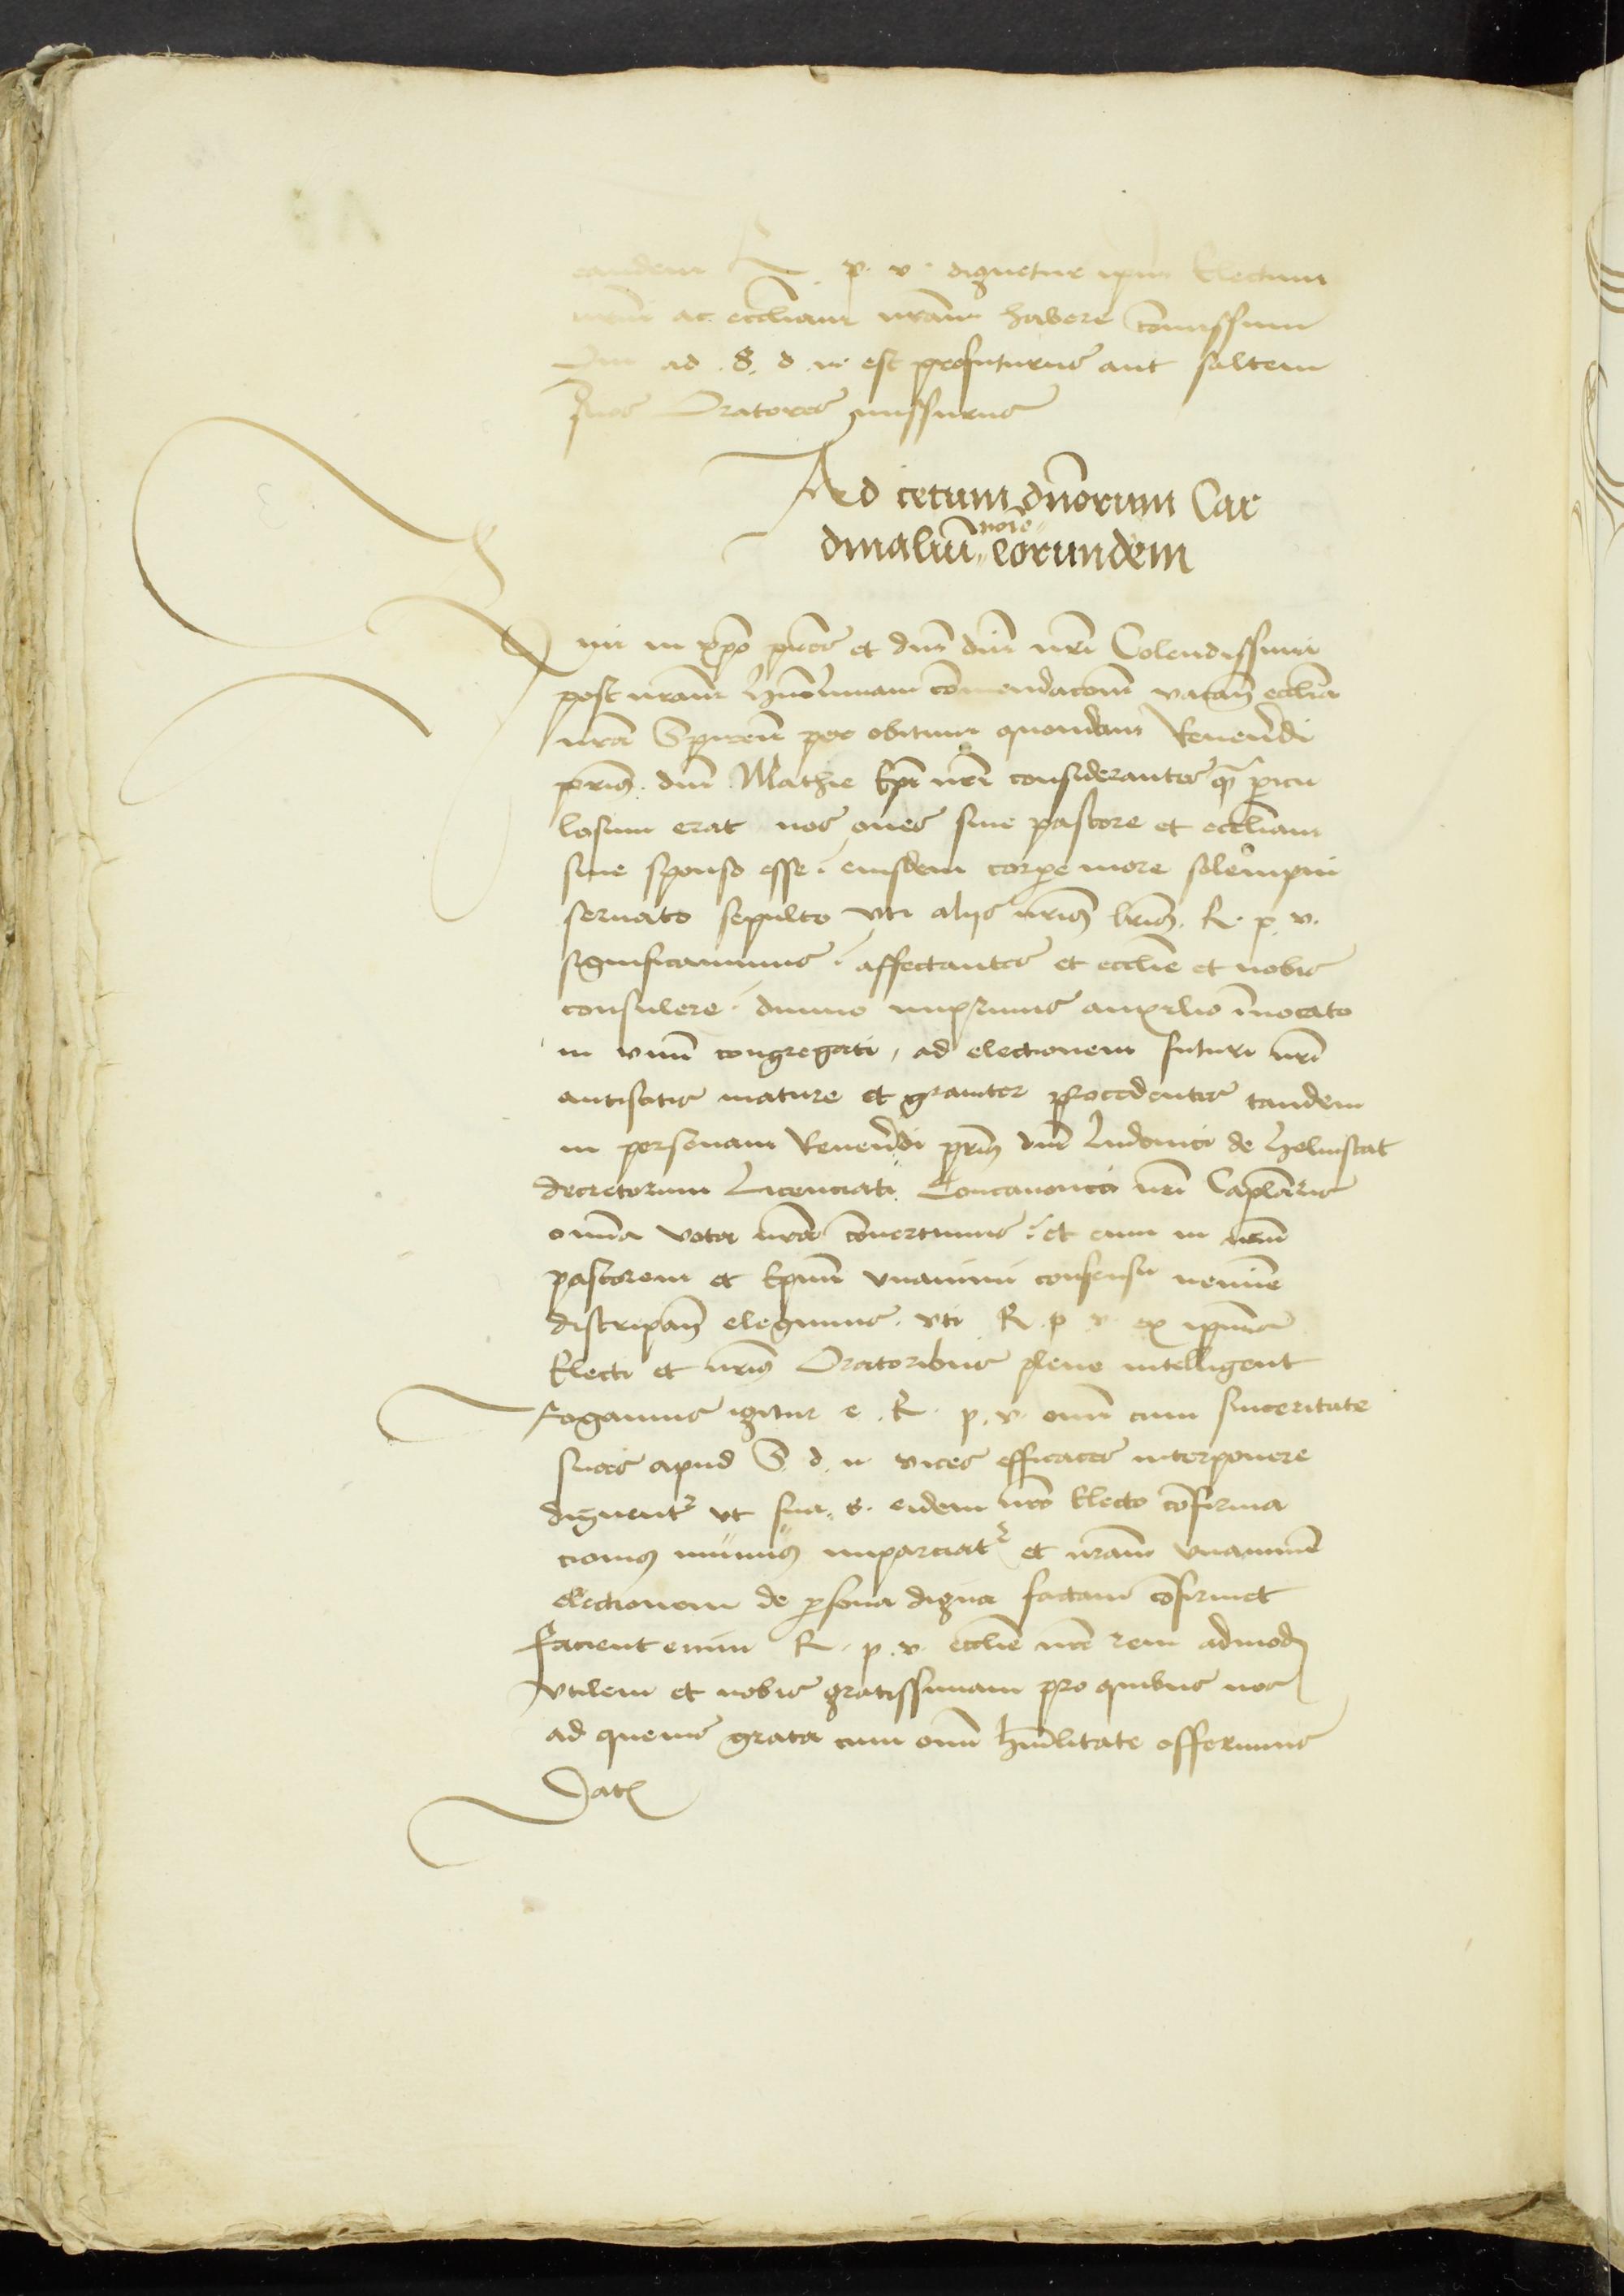 eandem R. p. v. dignetur ipm̄ Electum
nrm̄ ac eccliam nram̄ habere cōmissum
Qui ad .S. d. n. est profuturus aut saltem
suos Oratores missurus
Ad cetum dn̄orum Car
dinaliū nore eorundem
Rmi in xp̄o pr̄es et dn̄i dn̄i nr̄i Colendissimi
post nram̄ humillimam comendacōm vacan̄ ecclia
nrā Spiren̄ per obitum quondam Reuerēdi
pris dn̄i Mathie Ep̄i nr̄i considerantes qm̄ pericu
losum erat nos oues sine pastore et eccliam
sine sponso esse. eiusdem corpe more solempni
seruato sepulto vti alijs nris lris. R. p. v.
significauimus. affectantes et ecclie et nobis
consulere. diuino inprimis auxilio inuocato
in vnū congregati, ad electionem futuri nri
antistitis mature et grauiter procedentes tandem
in personam Reuerēdi pris dn̄i Ludouici de Helmstat
decretorum Licenciati. Concanonici nri Caplaris
omīa vota nrā conuertimus. et eum in nrm̄
pastorem et Ep̄um vnanimi consensu nemine
discripan̄ elegimus. vti R. p. v. ex ipius
Electi et nris Oratoribus plene intelligent
Rogamus igitur e. R. p. v. omī cum sinceritate
suas apud S. d. n. vices efficaces interponere
dignent ut sua. s. eidem nro Electo cōfirma
cionis munus imparciat et nram̄ vnanimē
electionem de psona digna factam cōfirmet
facient enim R. p. v. ecclie nrē rem admod
vtilem et nobis gratissimam pro quibus nos
ad queuis grata cum omī humilitate offerimus
Dat